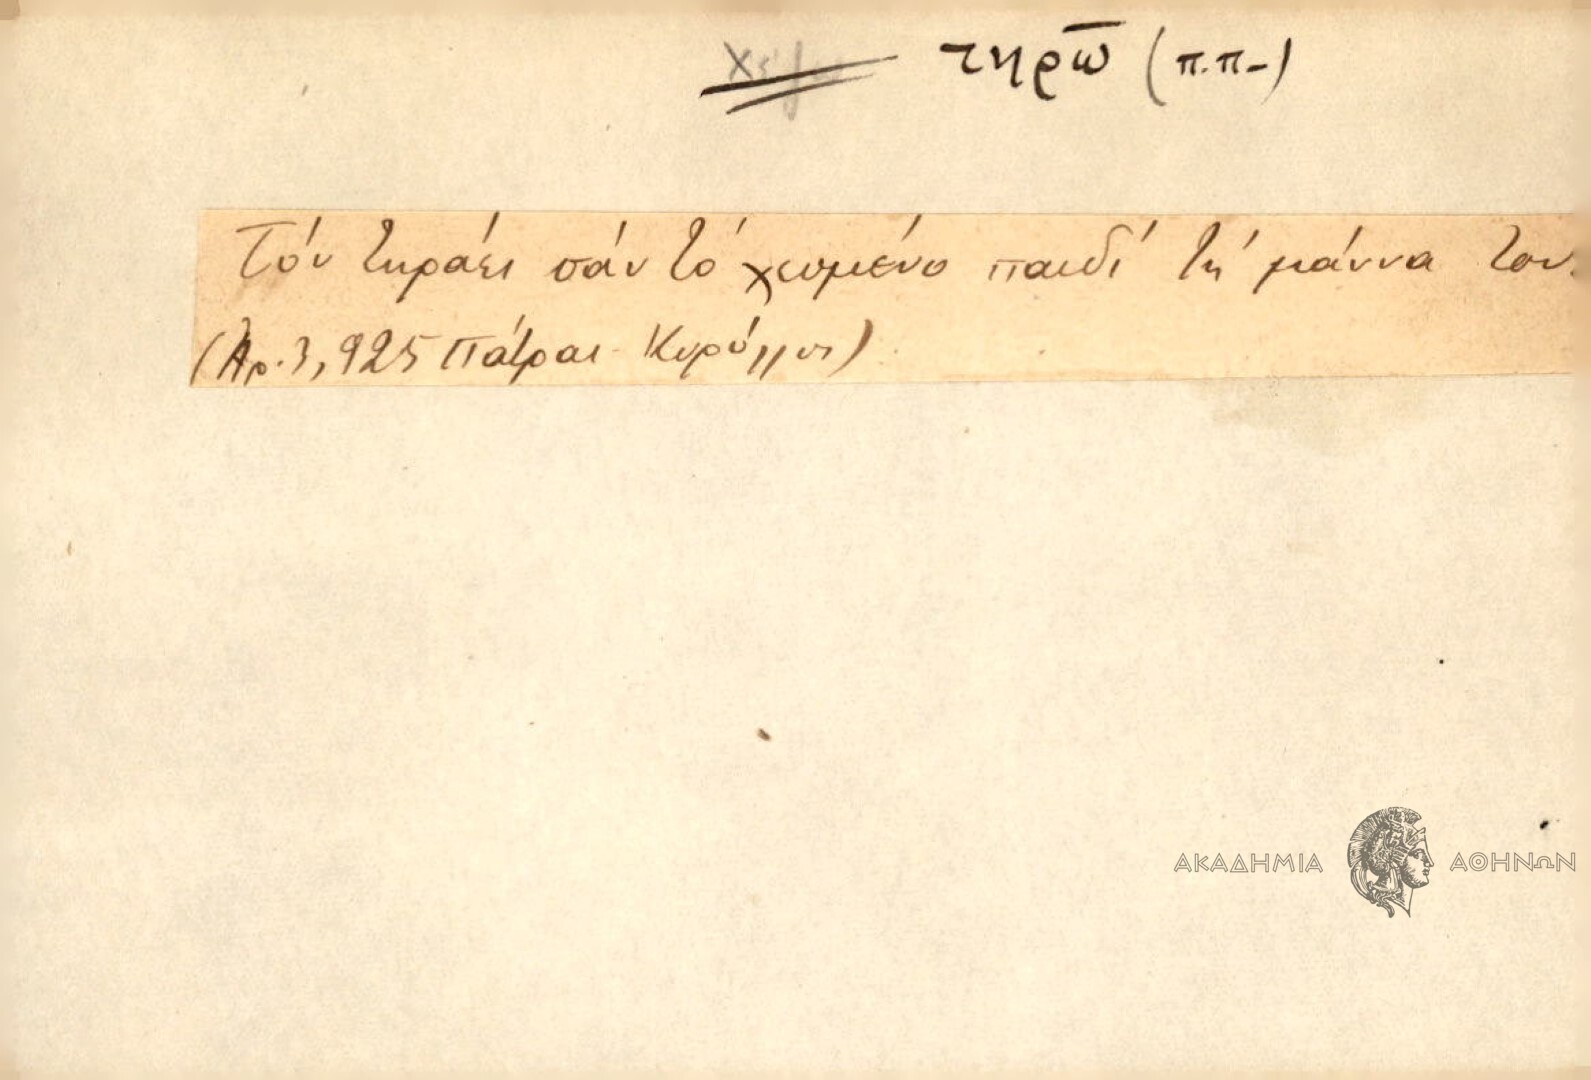 τηρῶ (π.π-)
Τόν τηράει σάν τό χεσμένο παιδί τή μάννα του.
(Αρ. 3, 925 Πάτραι
ΑΚΑΔΗΜΙΑ ΑΘΗΝΩΝ